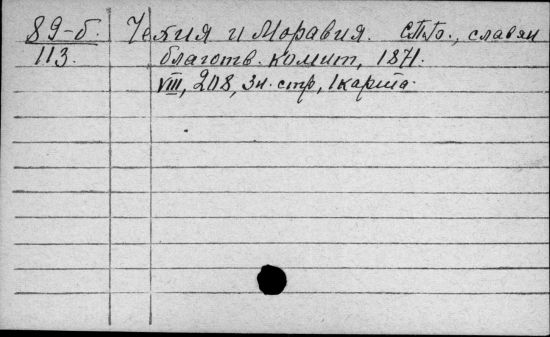 89-б. Чехия и Моравия. СПб., славян
113. благотв. комит, 1871.
VIII, 208, 3н. стр, 1 карта.